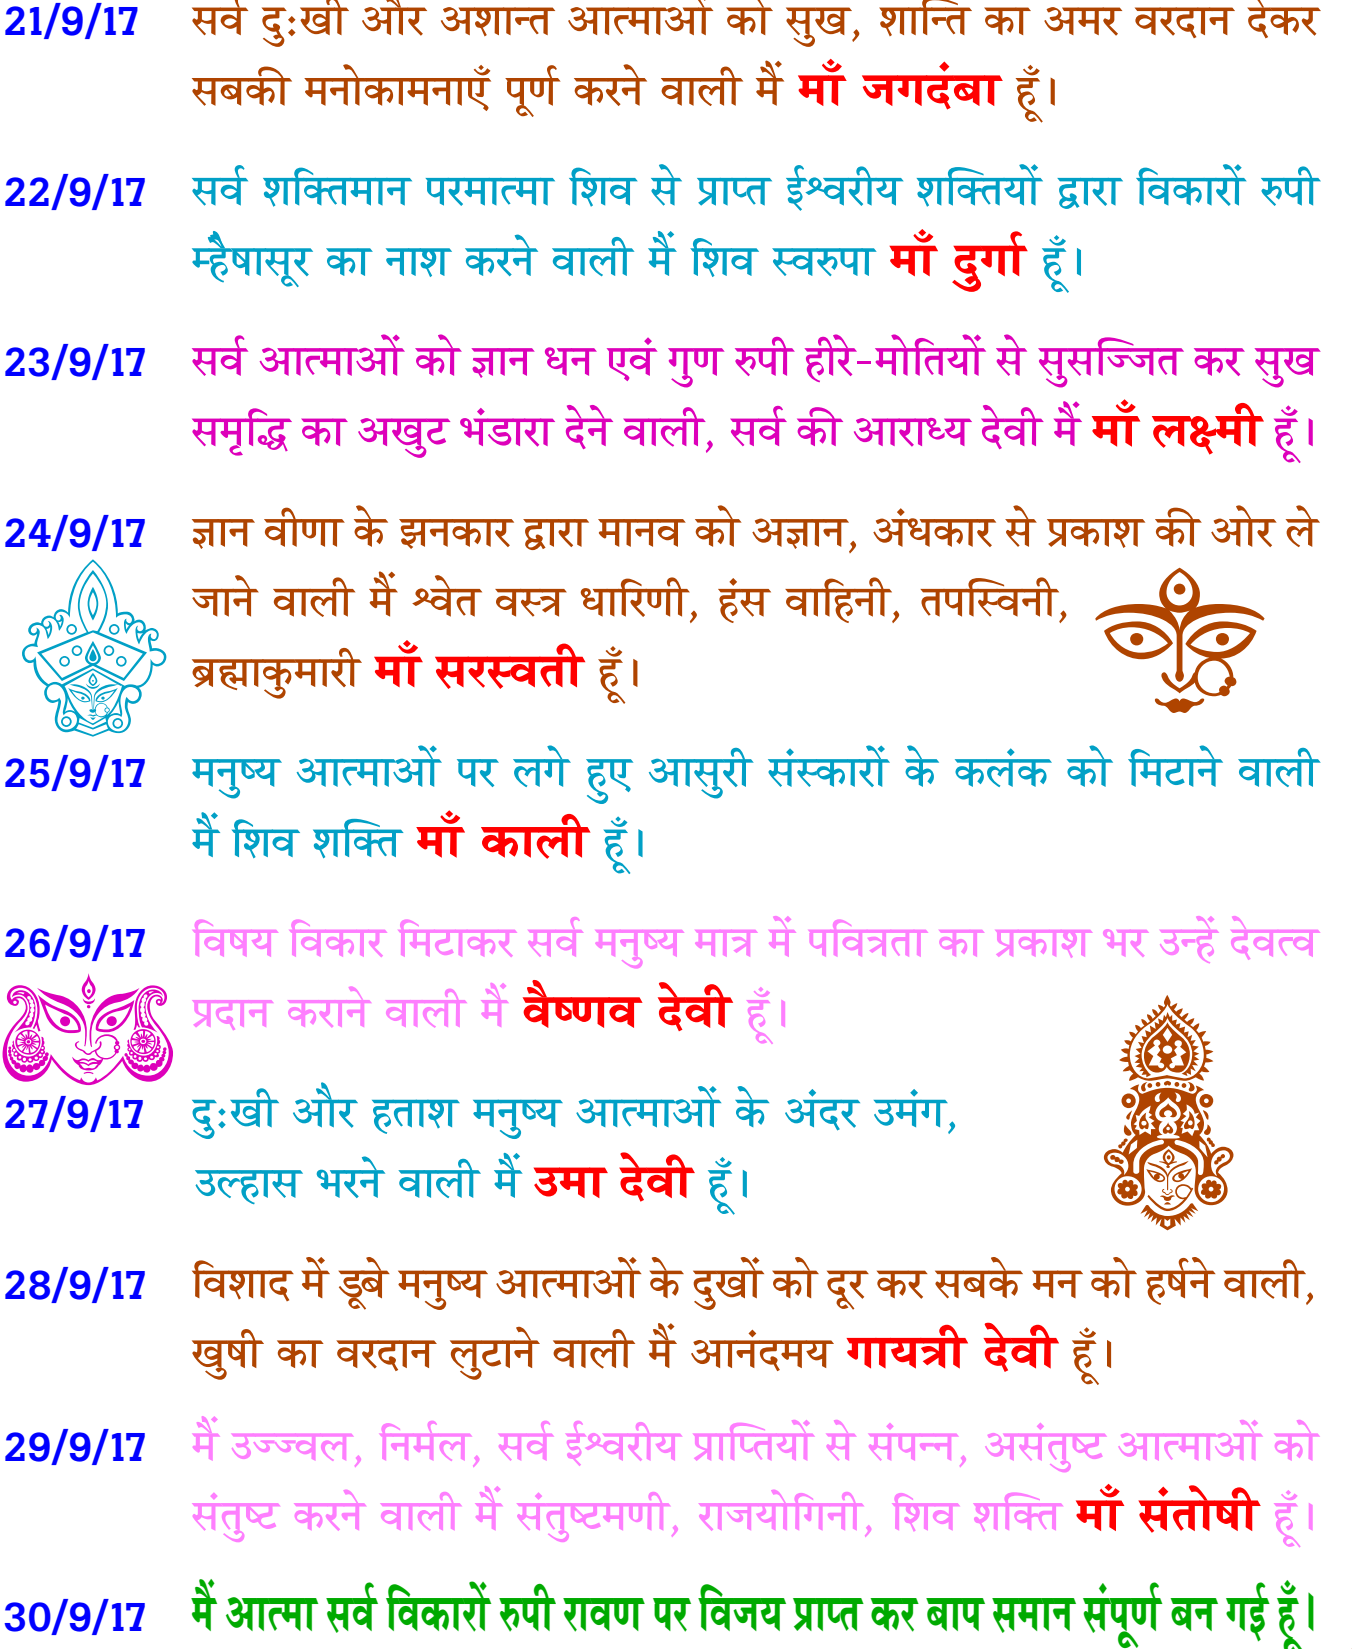 21/9/17 सर्व दुःखी और अशान्त आत्माओं को सुख, शान्ति का अमर वरदान देकर
सबकी मनोकामनाएँ पूर्ण करने वाली मैं माँ जगदंबा हूँ।
22/9/17 सर्व शक्तिमान परमात्मा शिव से प्राप्त ईश्वरीय शक्तियों द्वारा विकारों रुपी
म्हैषासूर का नाश करने वाली मैं शिव स्वरुपा माँ दुर्गा हूँ।
23/9/17 सर्व आत्माओं को ज्ञान धन एवं गुण रुपी हीरे-मोतियों से सुसज्जित कर सुख
समृद्धि का अखुट भंडारा देने वाली, सर्व की आराध्य देवी मैं माँ लक्ष्मी हूँ।
24/9/17 ज्ञान वीणा के झनकार द्वारा मानव को अज्ञान, अंधकार से प्रकाश की ओर ले
जाने वाली मैं श्वेत वस्त्र धारिणी, हंस वाहिनी, तपस्विनी,
ब्रह्माकुमारी माँ सरस्वती हूँ।
25/9/17 मनुष्य आत्माओं पर लगे हुए आसुरी संस्कारों के कलंक को मिटाने वाली
मैं शिव शक्ति माँ काली हूँ।
26/9/17 विषय विकार मिटाकर सर्व मनुष्य मात्र में पवित्रता का प्रकाश भर उन्हें देवत्व
प्रदान कराने वाली मैं वैष्णव देवी हूँ।
27/9/17 दुःखी और हताश मनुष्य आत्माओं के अंदर उमंग,
उल्हास भरने वाली मैं उमा देवी हूँ।
28/9/17 विशाद में डूबे मनुष्य आत्माओं के दुखों को दूर कर सबके मन को हर्षने वाली,
खुषी का वरदान लुटाने वाली मैं आनंदमय गायत्री देवी हूँ।
29/9/17 मैं उज्ज्वल, निर्मल, सर्व ईश्वरीय प्राप्तियों से संपन्न, असंतुष्ट आत्माओं को
संतुष्ट करने वाली मैं संतुष्टमणी, राजयोगिनी, शिव शक्ति माँ संतोषी हूँ।
30/9/17 मैं आत्मा सर्व विकारों रुपी रावण पर विजय प्राप्त कर बाप समान संपूर्ण बन गई हूँ।